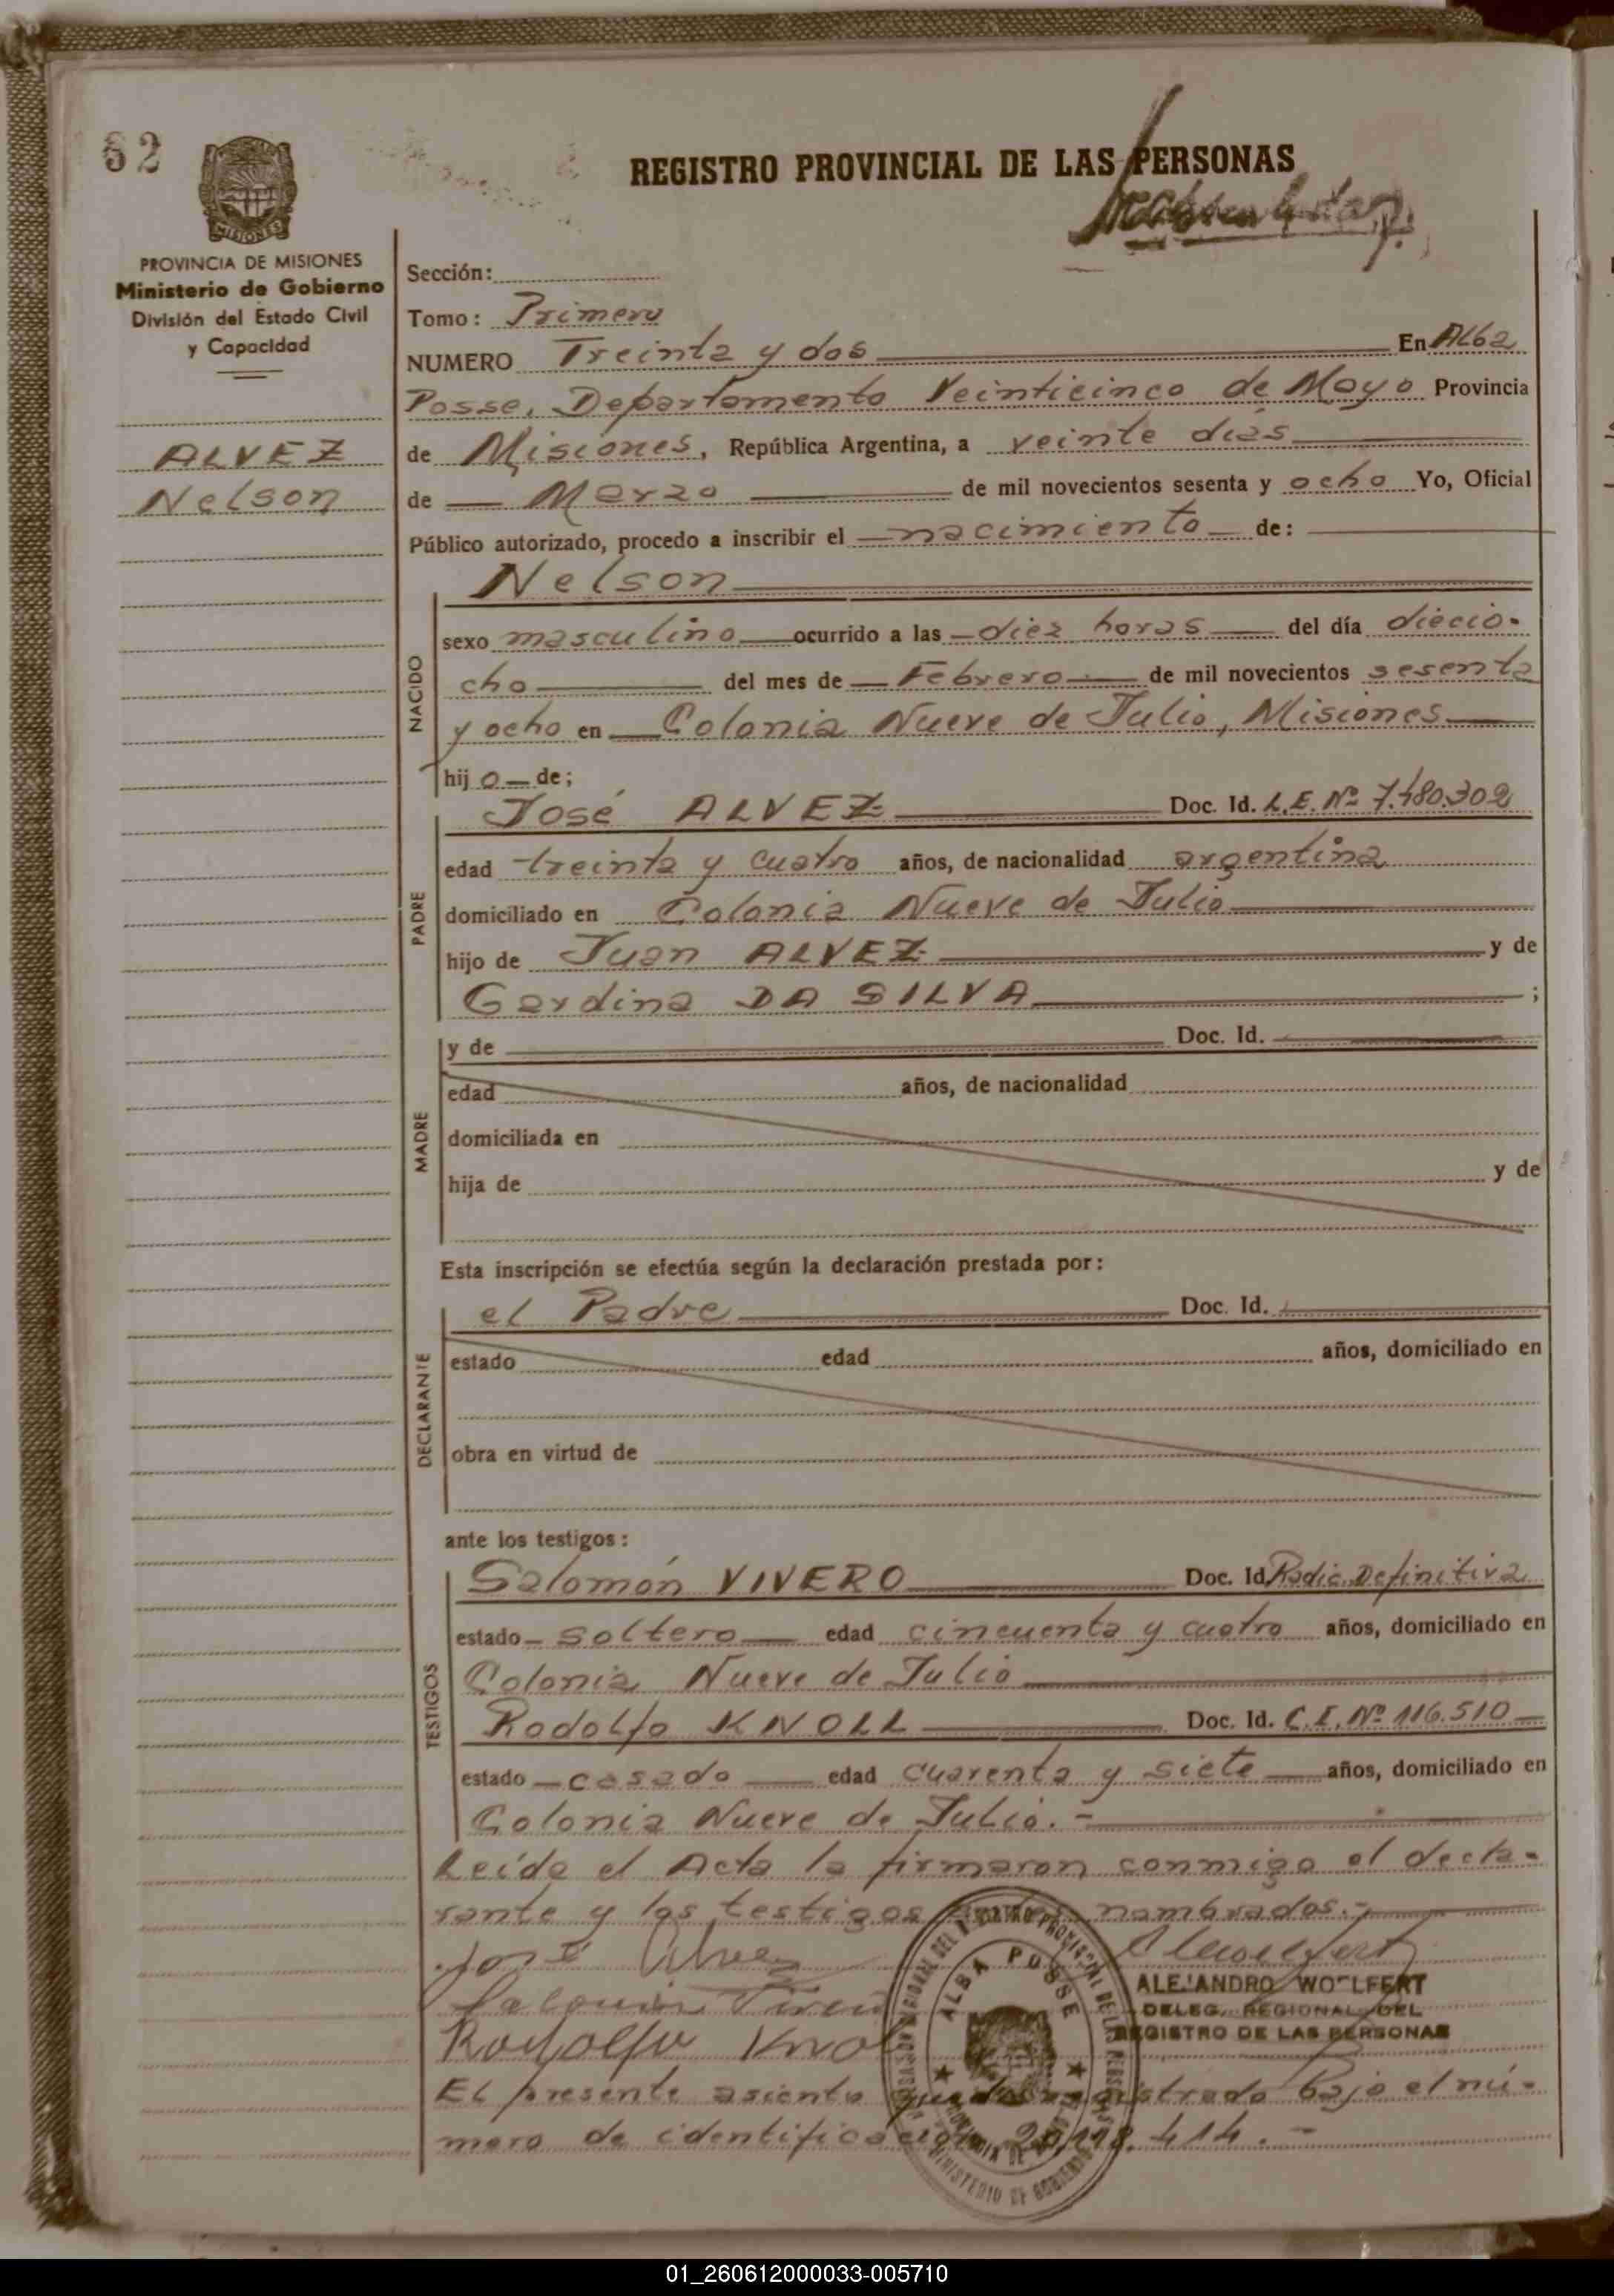 32
REGISTRO PROVINCIAL DE LAS PERSONAS
MISIONES
PROVINCIA DE MISIONES
Ministerio de Gobierno
División del Estado Civil
y Capacidad
ALVEZ
Nelson
Sección:
Tomo: Primero
NUMERO Treinta y dos En Alba
Posse, Departamento Veinticinco de Mayo Provincia
de Misiones, República Argentina, a veinte días
de Marzo de mil novecientos sesenta y ocho Yo, Oficial
Público autorizado, procedo a inscribir el nacimiento de:
Nelson
NACIDO
sexo masculino ocurrido a las diez horas del día diecio-
cho del mes de Febrero de mil novecientos sesenta
y ocho en Colonia Nueve de Julio, Misiones
hijo de;
PADRE
José ALVEZ Doc. Id. L.E. Nº 7.480.302
edad treinta y cuatro años, de nacionalidad argentina
domiciliado en Colonia Nueve de Julio
hijo de Juan ALVEZ y de
Gardina DA SILVA ;
MADRE
y de Doc. Id.
edad años, de nacionalidad
domiciliada en
hija de y de
Esta inscripción se efectúa según la declaración prestada por:
DECLARANTE
el Padre Doc. Id.
estado edad años, domiciliado en
obra en virtud de
ante los testigos:
TESTIGOS
Salomón VIVERO Doc. Id Radic. Definitiva
estado soltero edad cincuenta y cuatro años, domiciliado en
Colonia Nueve de Julio
Rodolfo KNOLL Doc. Id. C.I. Nº 116.510
estado casado edad cuarenta y siete años, domiciliado en
Colonia Nueve de Julio.-
Leída el Acta la firmaron conmigo el decla-
rante y los testigos nombrados.-
José Alvez
ALEJANDRO WOLFERT
DELEG. REGIONAL DEL
REGISTRO DE LAS PERSONAS
Rodolfo Knol
ALBA POSSE
El presente asiento queda registrado bajo el nú-
mero de identificación 414.-
01_260612000033-005710